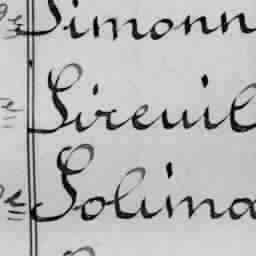 Simonn
Sireuil
Solina